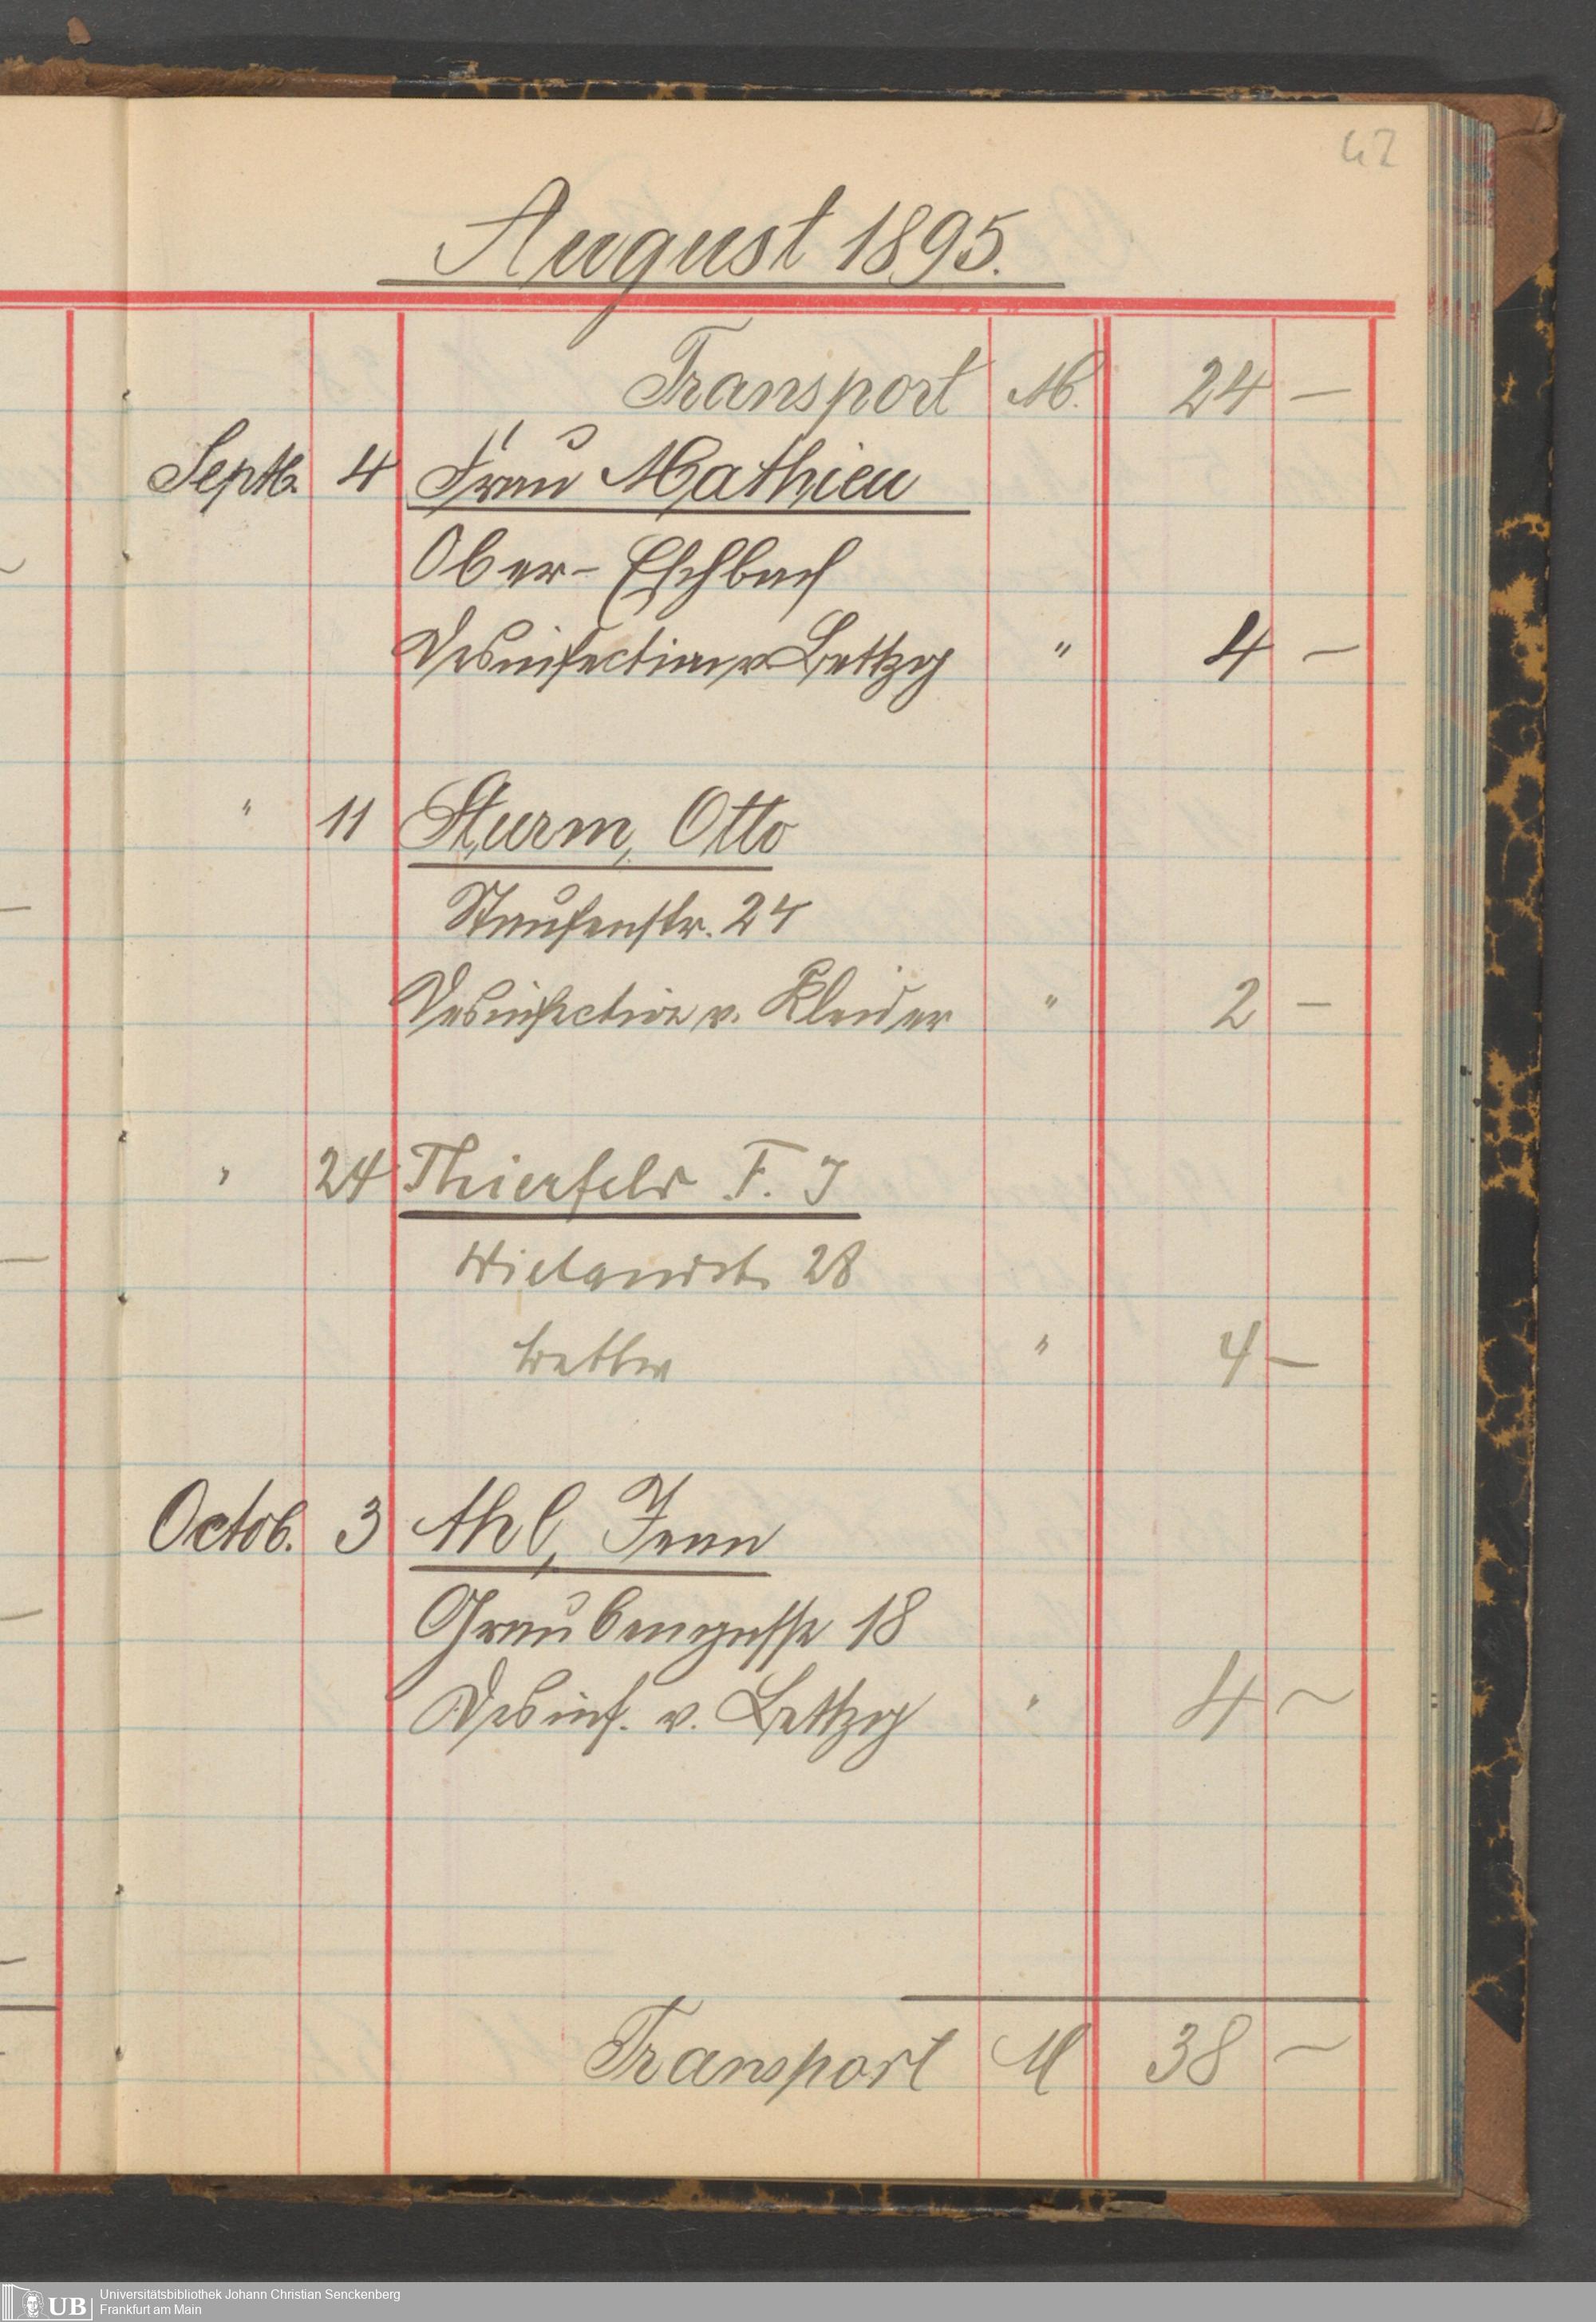 42
August 1895.
Transport M. 24 —
Septb. 4 Frau Mathieu
Ober-Eschbach
Desinfection v Bettzg " 4 —
" 11 Sturm, Otto
Staufenstr. 24
Desinfection v. Kleider " 2 —
" 24 Thierfeld F. J
Wielandstr 28
" 4 —
Octob. 3 Ahl, Jean
Graubengasse 18
Desinf. v. Bettzg " 4 —
Transport M 38 —
UB Universitätsbibliothek Johann Christian Senckenberg
Frankfurt am Main